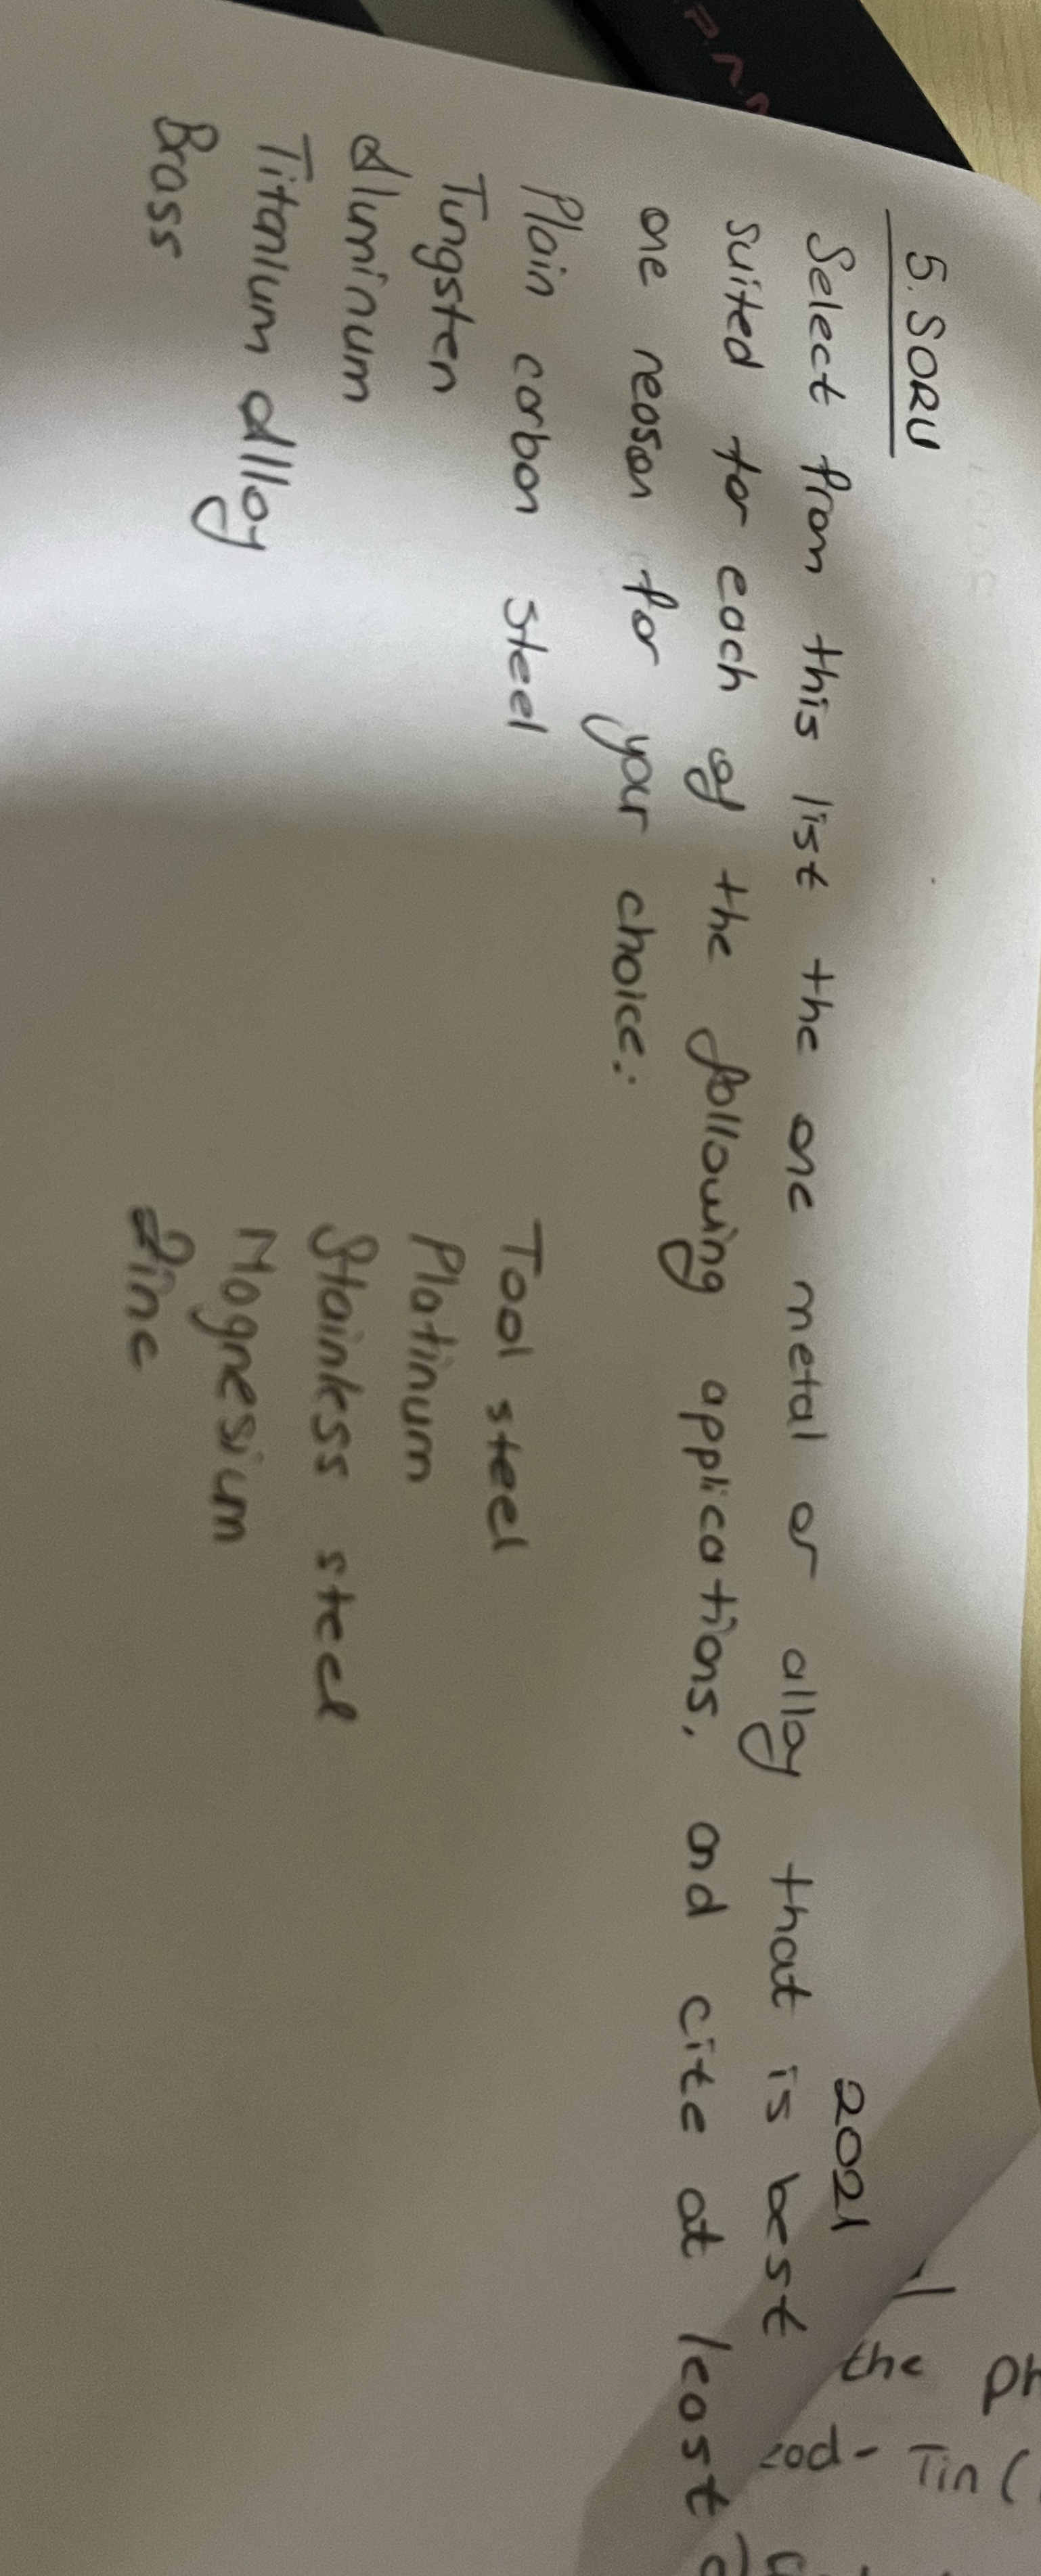 5. SORU
2021
Select from this list the one metal or alloy that is best
suited for each of the following applications, and cite at least
one reason for your choice:
Plain carbon steel
Tool steel
Tungsten
Platinum
Aluminum
Stainless steel
Titanium Alloy
Magnesium
Brass
Zinc
the
Tin (